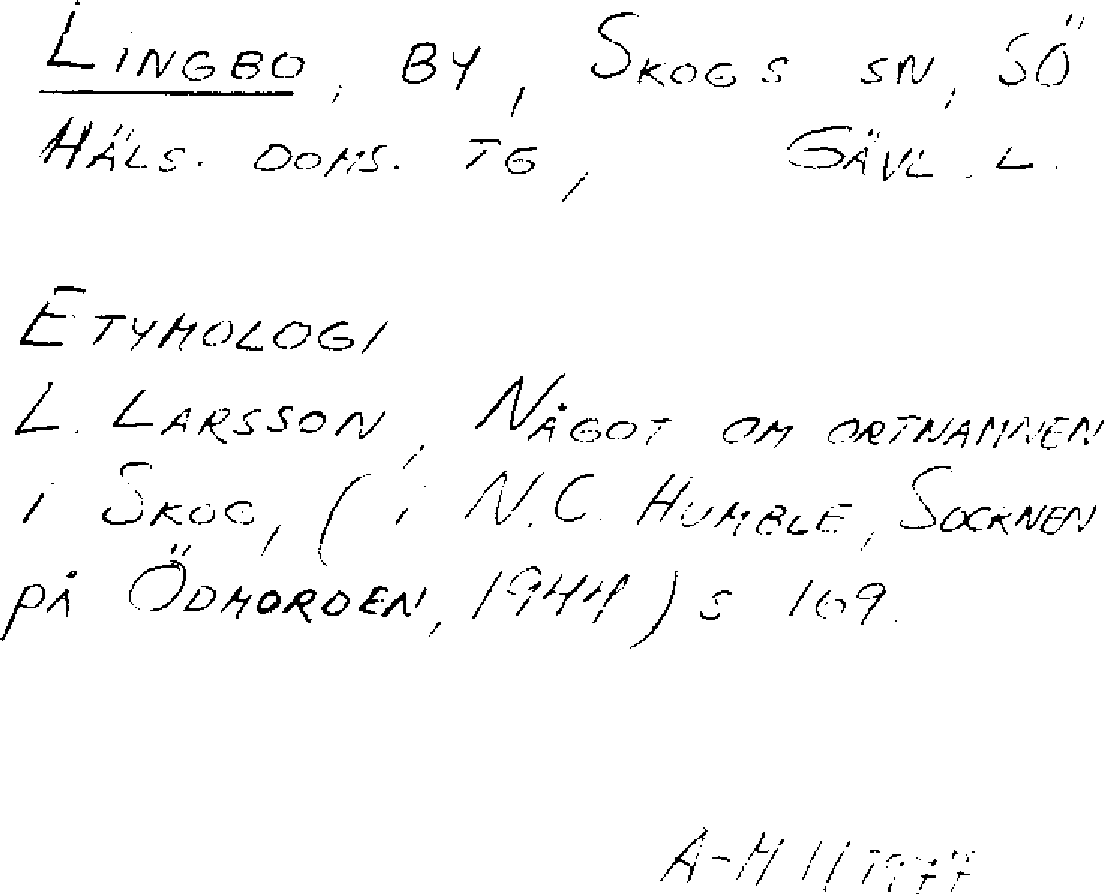 LINGBO, BY, SKOGS SN, SÖ
HÄLS. DOMS. TG, GÄVL. L.
ETYMOLOGI
L. LARSSON, NÅGOT OM ORTNAMNEN
I SKOG, (i N.C. HUMBLE, SOCKNEN
PÅ ÖDMORDEN, 1944) S 169.
A-M 1977